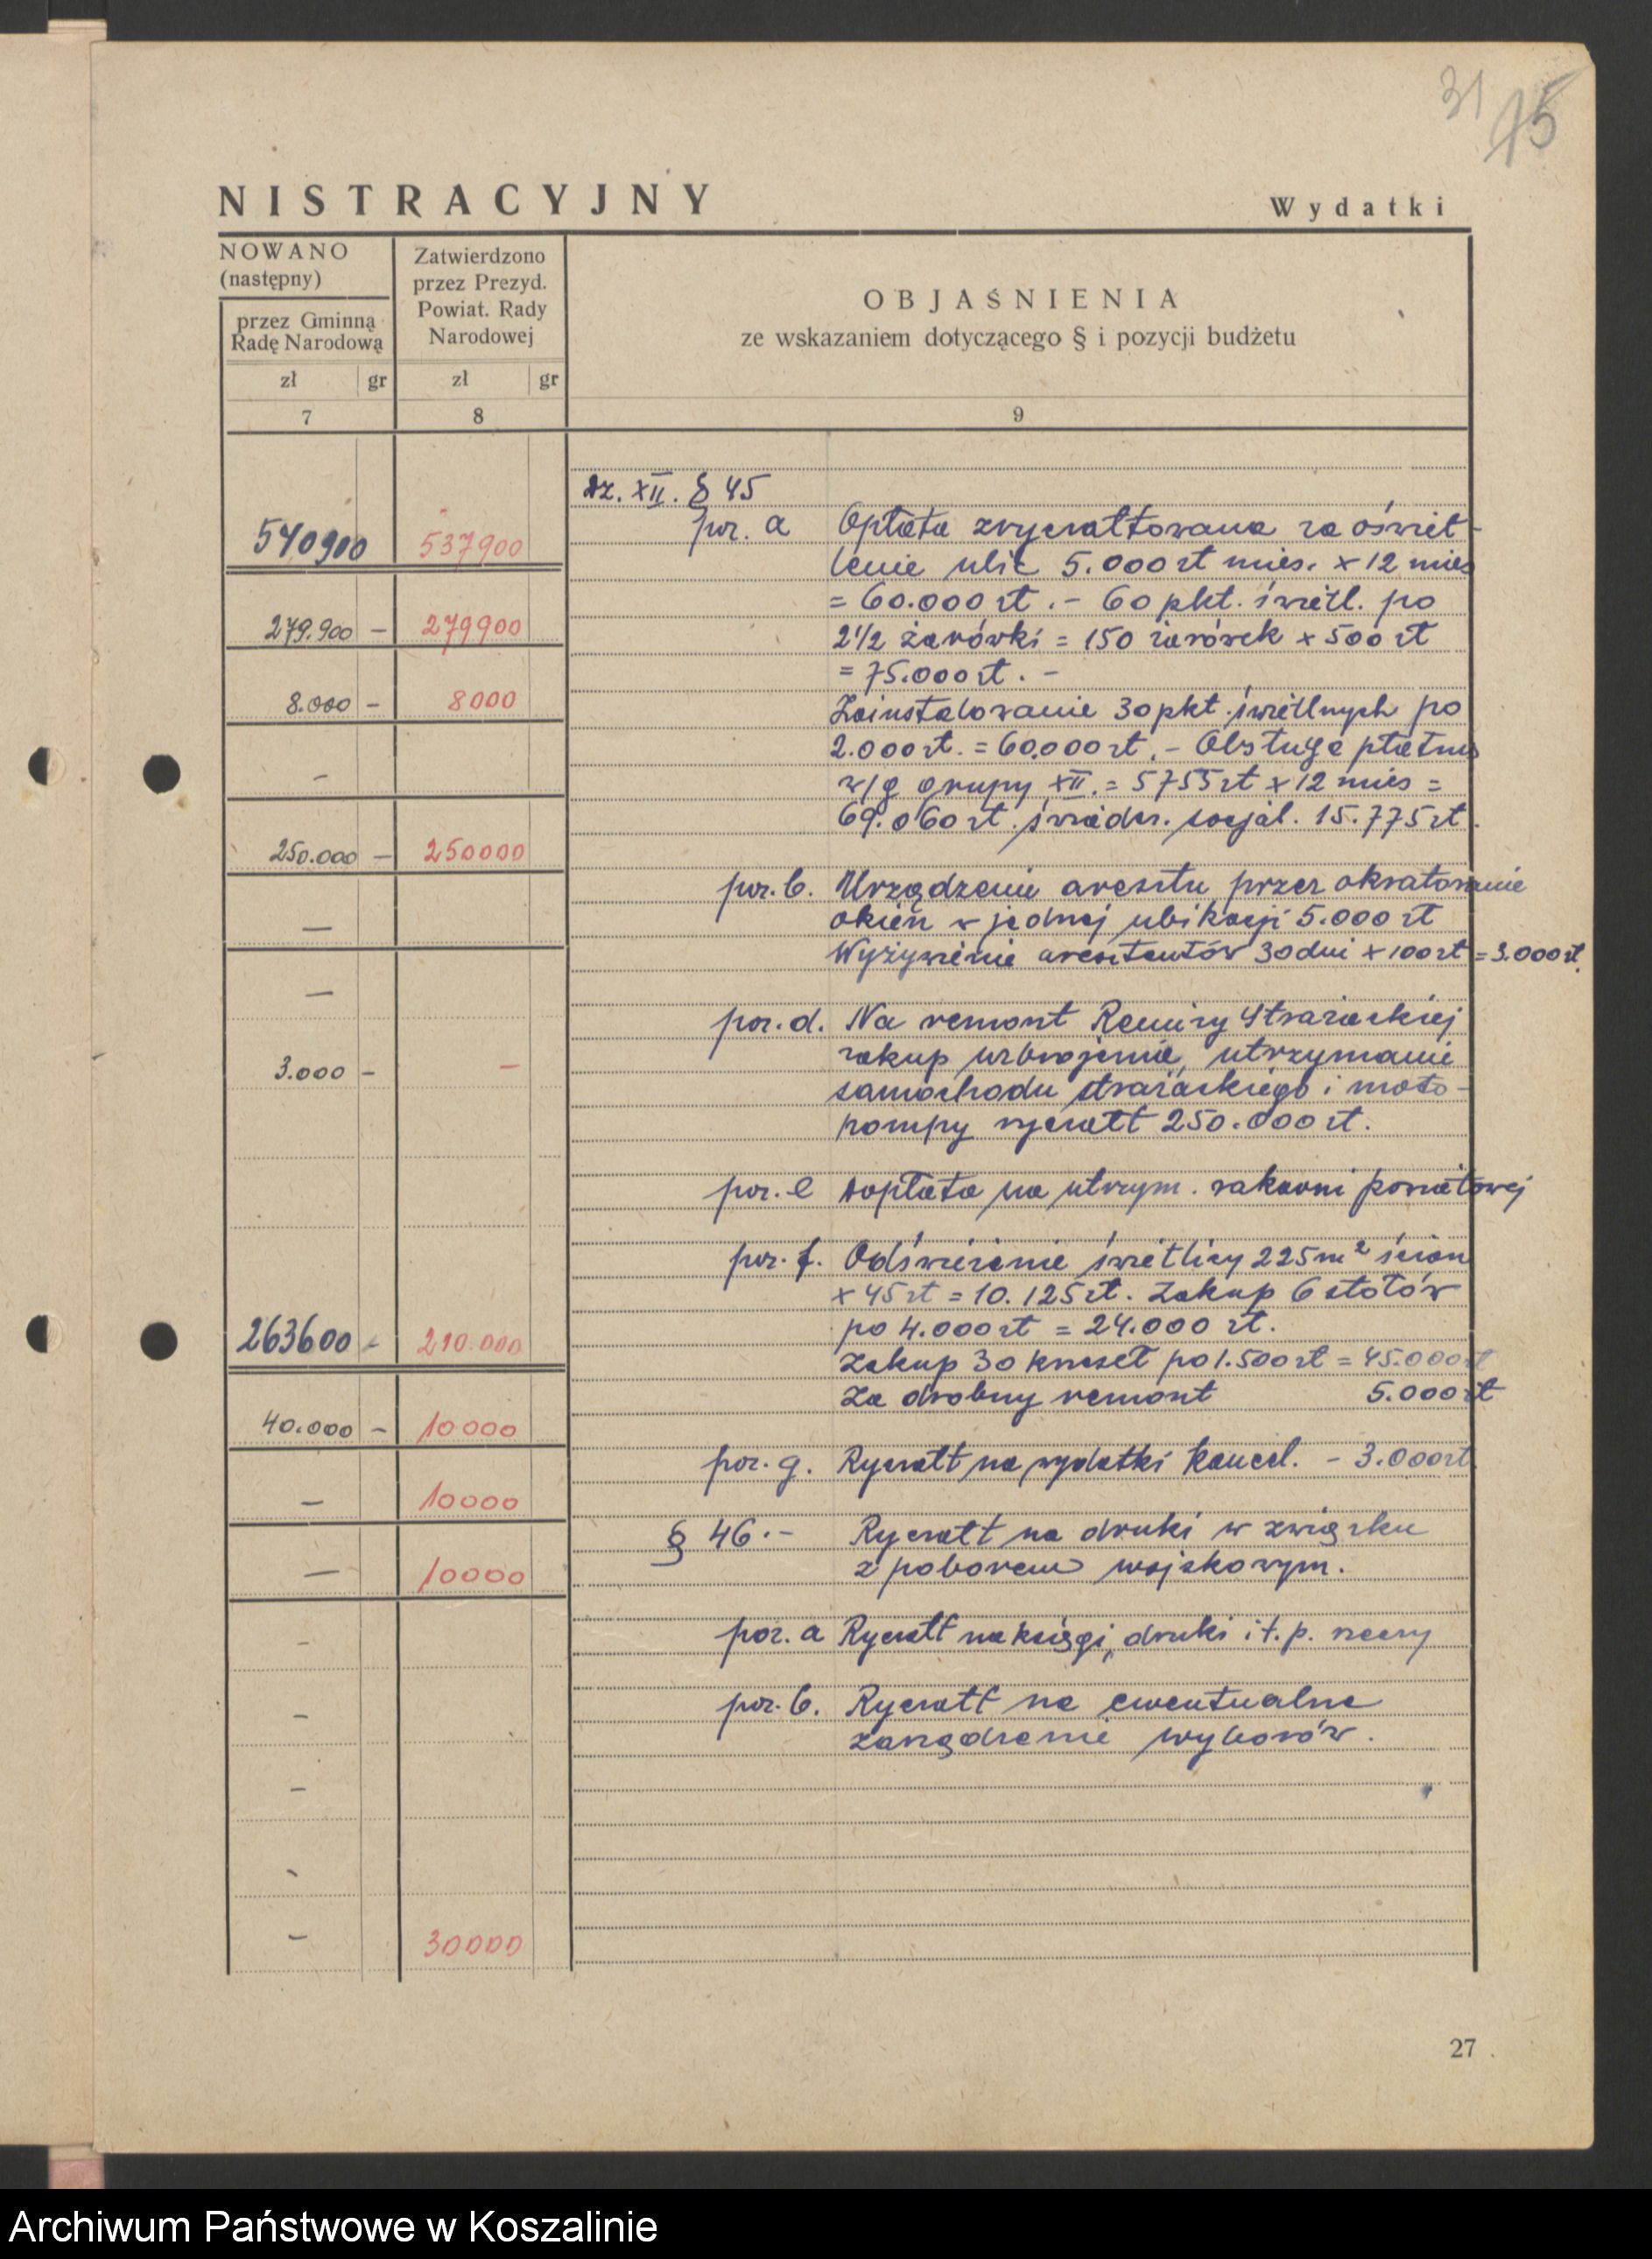 31 15
NISTRACYJNY Wydatki
NOWANO
(następny)
przez Gminną
Radę Narodową
Zatwierdzono
przez Prezyd.
Powiat. Rady
Narodowej
OBJAŚNIENIA
ze wskazaniem dotyczącego § i pozycji budżetu
zł gr zł gr
7 8 9
Dz. XII. § 45
540900 537900 poz. a Opłata zryczałtowana za oświet-
lenie ulic 5.000 zł mies. x 12 mies
= 60.000 zł. - 60 pkt. świetl. po
279.900 - 279900 2 1/2 żarówki = 150 żarówek x 500 zł
= 75.000 zł. -
8.000 - 8000 Zainstalowanie 30 pkt. świetlnych po
2.000 zł. = 60.000 zł. - Obsługa płatna
- w/g grupy XII. = 5755 zł x 12 mies =
69.060 zł. świadcz. socjal. 15.775 zł.
250.000 - 250000
poz. b. Urządzenie aresztu przez okratowanie
- okien w jednej ubikacji 5.000 zł
Wyżywienie aresztantów 30 dni x 100 zł = 3.000 zł.
-
poz. d. Na remont Remizy Strażackiej
3.000 - - zakup uzbrojenia, utrzymanie
samochodu strażackiego i moto-
pompy ryczałt 250.000 zł.
poz. e Dopłata na utrzym. rakarni powiatowej
poz. f. Odświeżenie świetlicy 225 m² ścian
x 45 zł = 10.125 zł. Zakup 6 stołów
263600 - 210.000 po 4.000 zł = 24.000 zł.
Zakup 30 krzeseł po 1.500 zł = 45.000 zł
Za drobny remont 5.000 zł
40.000 - 10000
poz. g. Ryczałt na wydatki kancel. - 3.000 zł
- 10000
§ 46. - Ryczałt na druki w związku
- 10000 z poborem wojskowym.
- poz. a Ryczałt na księgi, druki i t. p. rzeczy
- poz. b. Ryczałt na ewentualne
zarządzenie wyborów.
-
-
- 30000
27
Archiwum Państwowe w Koszalinie